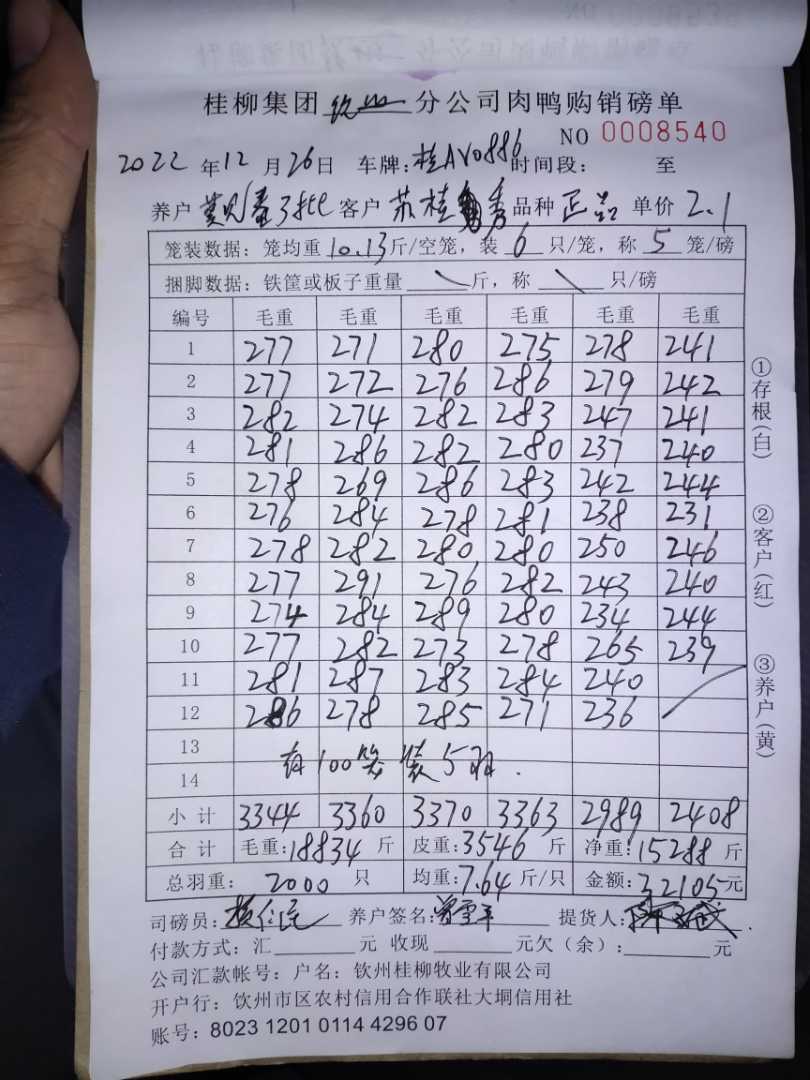 桂柳集团钦州分公司肉鸭购销磅单
NO 0008540
2022年12月26日 车牌:桂AV0886时间段: 至
养户 批 客户 苏桂秀 品种 正品 单价 2.1
笼装数据: 笼均重10.13斤/空笼, 装6只/笼, 称5笼/磅
捆脚数据: 铁筐或板子重量 斤, 称 只/磅
编号 毛重 毛重 毛重 毛重 毛重 毛重
1 277 271 280 275 278 241
2 277 272 276 286 279 242
3 282 274 282 283 247 241
4 281 286 282 280 237 240
5 278 269 286 283 242 244
6 276 284 278 281 238 231
7 278 282 280 280 250 246
8 277 291 276 282 243 240
9 274 284 289 280 234 244
10 277 282 273 278 265 239
11 281 287 283 284 240
12 286 278 285 271 236
13
有100笼装5羽.
14
小计 3344 3360 3370 3363 2989 2408
合计 毛重:18834斤 皮重:3546斤 净重:15288斤
总羽重: 2000只 均重:7.64斤/只 金额:32105元
①存根(白)
②客户(红)
③养户(黄)
司磅员: 养户签名: 提货人:
付款方式: 汇 元 收现 元欠(余): 元
公司汇款帐号: 户名: 钦州桂柳牧业有限公司
开户行: 钦州市区农村信用合作联社大垌信用社
账号: 8023 1201 0114 4296 07